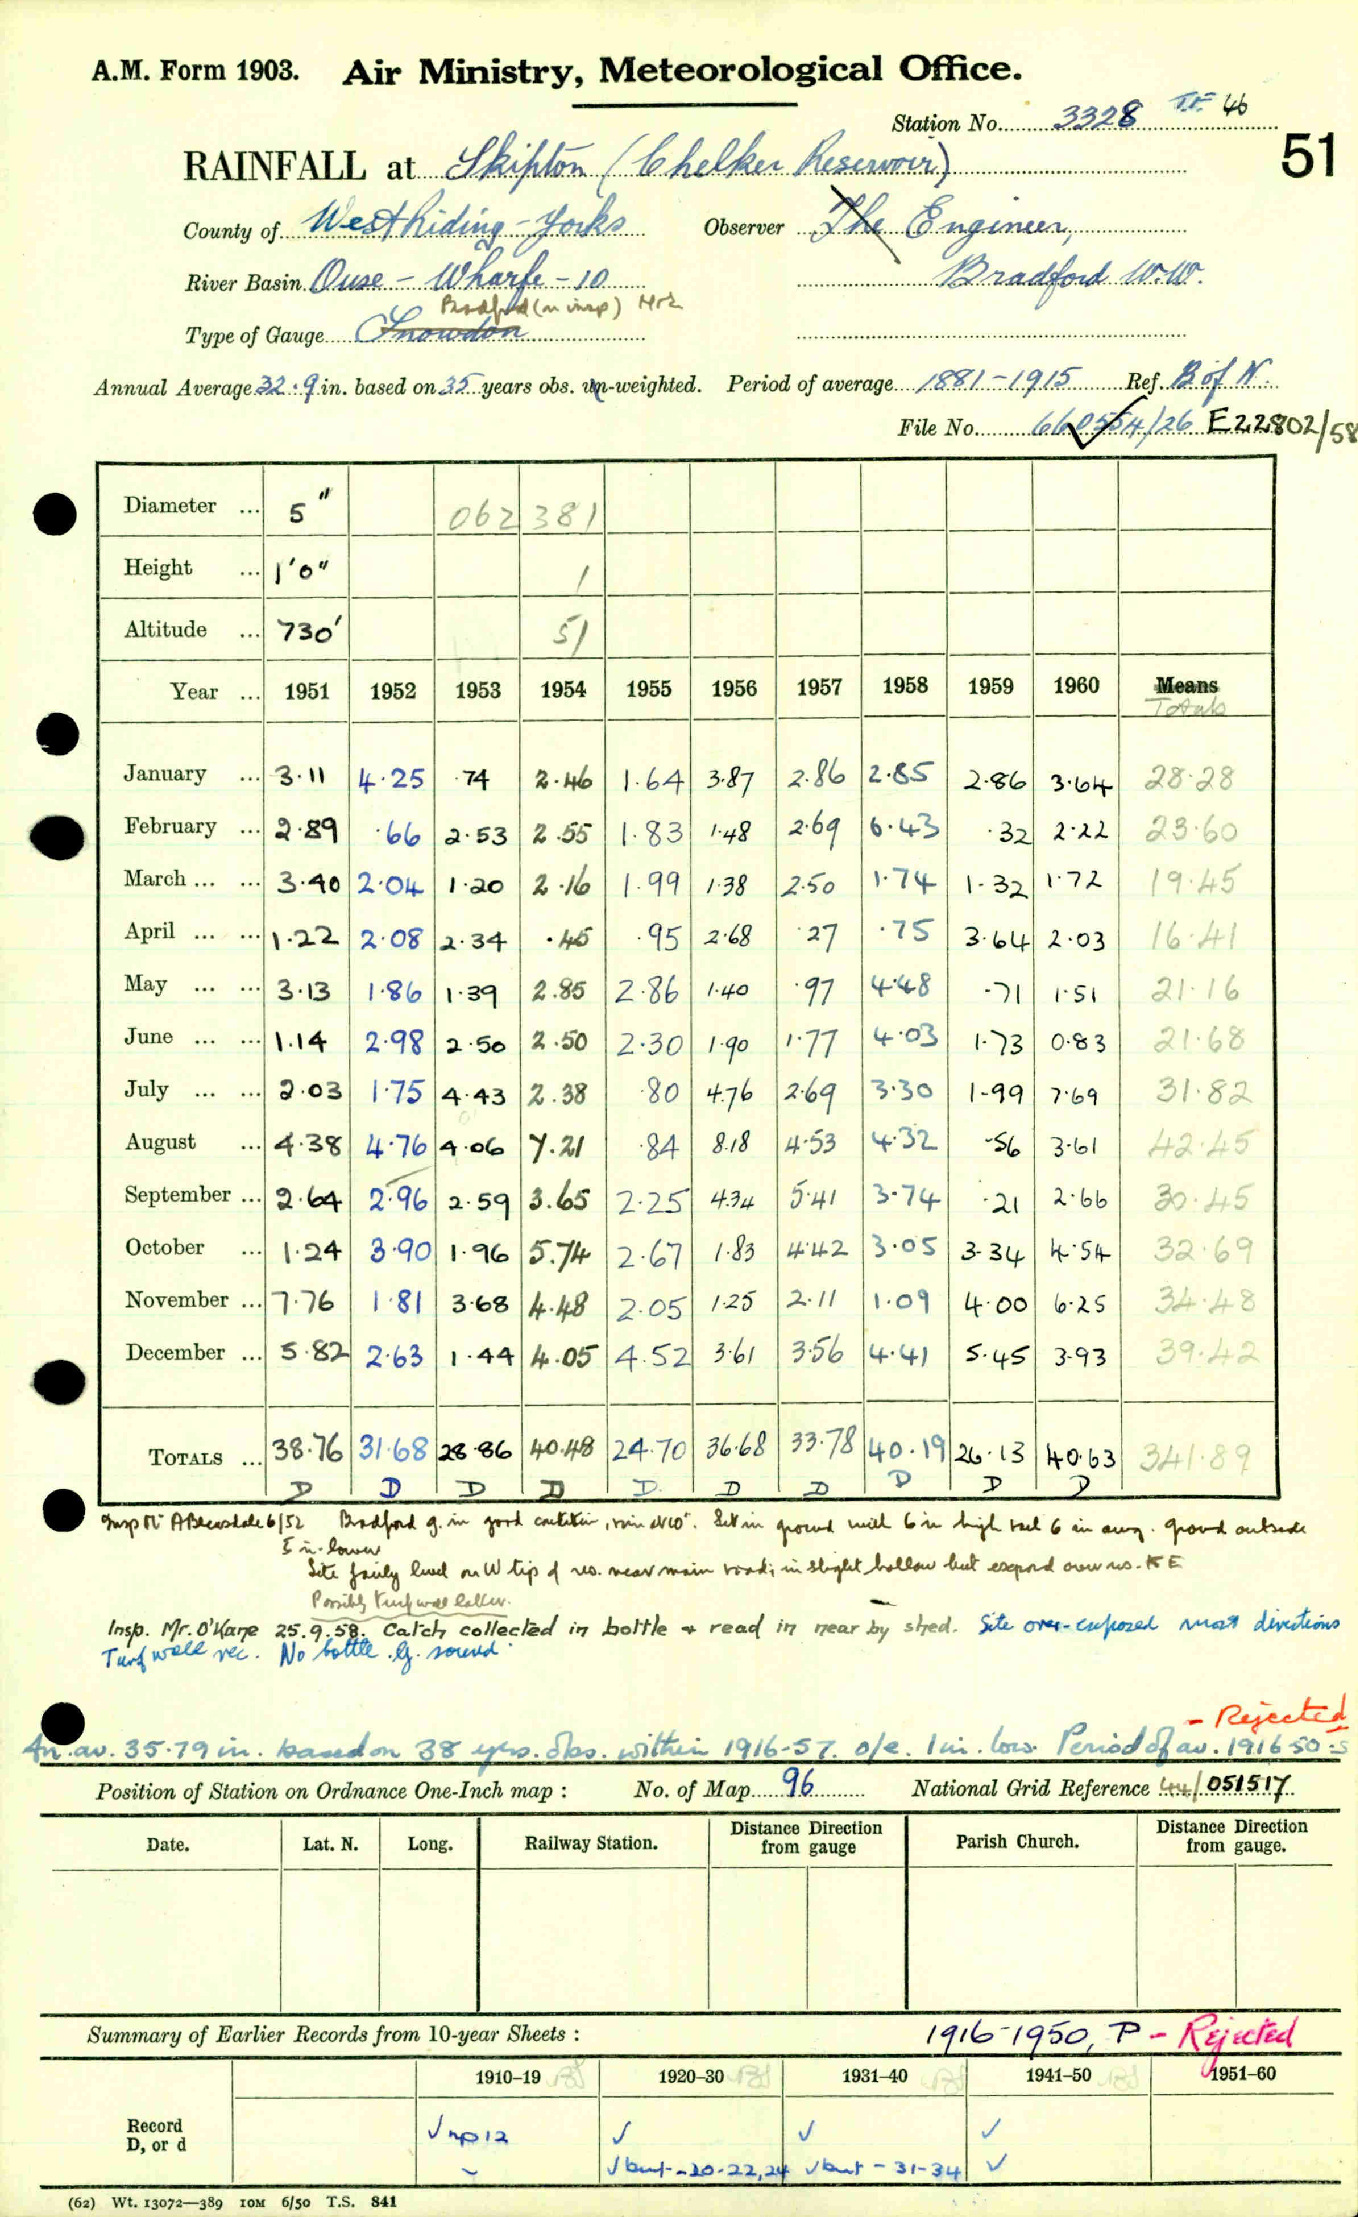 A.M. Form 1903. Air Ministry, Meteorological Office.
Station No. 3328 46
51
RAINFALL at Skipton (Chelker Reservoir)
County of West Riding - Yorks Observer The Engineer,
River Basin Ouse - Wharfe - 10 Bradford W.W.
Bradford (on insp)
Type of Gauge Snowdon
Annual Average 32.9 in. based on 35 years obs. un-weighted. Period of average 1881-1915 Ref. B of N.
File No. 660554/26 E22802/58
Diameter ... 5" 062 381
Height ... 1'0" 1
Altitude ... 730' 51
Year ... 1951 1952 1953 1954 1955 1956 1957 1958 1959 1960 Means
Totals
January ... 3.11 4.25 .74 2.46 1.64 3.87 2.86 2.85 2.86 3.64 28.28
February ... 2.89 .66 2.53 2.55 1.83 1.48 2.69 6.43 .32 2.22 23.60
March ... ... 3.40 2.04 1.20 2.16 1.99 1.38 2.50 1.74 1.32 1.72 19.45
April ... ... 1.22 2.08 2.34 .45 .95 2.68 .27 .75 3.64 2.03 16.41
May ... ... 3.13 1.86 1.39 2.85 2.86 1.40 .97 4.48 .71 1.51 21.16
June ... ... 1.14 2.98 2.50 2.50 2.30 1.90 1.77 4.03 1.73 0.83 21.68
July ... ... 2.03 1.75 4.43 2.38 .80 4.76 2.69 3.30 1.99 7.69 31.82
August ... 4.38 4.76 4.06 7.21 .84 8.18 4.53 4.32 .56 3.61 42.45
September ... 2.64 2.96 2.59 3.65 2.25 4.34 5.41 3.74 .21 2.66 30.45
October ... 1.24 3.90 1.96 5.74 2.67 1.83 4.42 3.05 3.34 4.54 32.69
November ... 7.76 1.81 3.68 4.48 2.05 1.25 2.11 1.09 4.00 6.25 34.48
December ... 5.82 2.63 1.44 4.05 4.52 3.61 3.56 4.41 5.45 3.93 39.42
TOTALS ... 38.76 31.68 28.86 40.48 24.70 36.68 33.78 40.19 26.13 40.63 341.89
D D D D D D D D D D
Insp Mr A Bleasdale 6/52 Bradford g. in good condition, rim Set in ground wall 6 in high ground outside
5 in. lower
Site fairly level on W tip of res. near main road; in slight hollow but exposed
Possibly turf wall later.
Insp. Mr. O'Kane 25.9.58. Catch collected in bottle & read in near by shed. Site over-exposed most directions
Turf wall rec. No bottle. G. sound.
- Rejected
An. av. 35.79 in. based on 38 yrs. obs. within 1916-57. o/e. 1 in. low. Period of av. 1916-50.s
Position of Station on Ordnance One-Inch map : No. of Map 96 National Grid Reference 44/051517
Date. Lat. N. Long. Railway Station. Distance Direction from gauge Parish Church. Distance Direction from gauge.
Summary of Earlier Records from 10-year Sheets : 1916-1950, P - Rejected
1910-19 1920-30 1931-40 1941-50 1951-60
Record ✓ np 12 ✓ ✓ ✓
D, or d ✓ but - 20-22, 24 ✓ but - 31-34 ✓
(62) Wt. 13072—389 IOM 6/50 T.S. 841